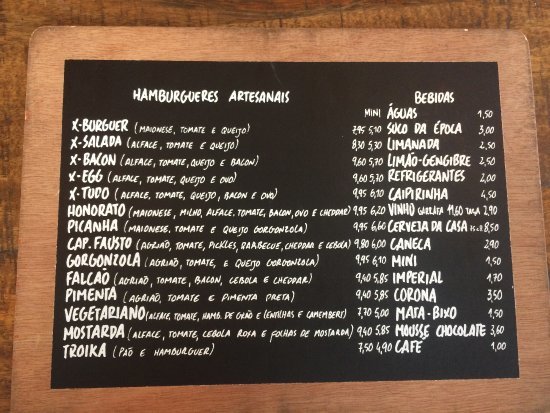 HAMBURGUERES ARTESANAIS
MINI
X-BURGUER (MAIONESE, TOMATE E QUEIJO) 7,95 5,10
X-SALADA (ALFACE, TOMATE E QUEIJO) 8,30 5,30
X-BACON (ALFACE, TOMATE, QUEIJO E BACON) 9,60 5,70
X-EGG (ALFACE, TOMATE, QUEIJO E OVO) 9,60 5,70
X-TUDO (ALFACE, TOMATE, QUEIJO, BACON E OVO) 9,95 6,10
HONORATO (MAIONESE, MILHO, ALFACE, TOMATE, BACON, OVO E CHEDDAR) 9,95 6,20
PICANHA (MAIONESE, TOMATE E QUEIJO GORGONZOLA) 9,95 6,10
CAP. FAUSTO (AGRIÃO, TOMATE, PICKLES, BARBECUE, CHEDDAR E CEBOLA) 9,80 6,00
GORGONZOLA (AGRIÃO, TOMATE, E QUEIJO GORGONZOLA) 9,95 6,10
FALCÃO (AGRIÃO, TOMATE, BACON, CEBOLA E CHEDDAR) 9,40 5,85
PIMENTA (AGRIÃO, TOMATE E PIMENTA PRETA) 9,40 5,85
VEGETARIANO (ALFACE, TOMATE, HAMB. DE GRÃO E LENTILHAS E CAMEMBERT) 7,70 5,00
MOSTARDA (ALFACE, TOMATE, CEBOLA ROXA E FOLHAS DE MOSTARDA) 9,40 5,85
TROIKA (PÃO E HAMBURGUER) 7,50 4,90
BEBIDAS
ÁGUAS 1,50
SUCO DA ÉPOCA 3,00
LIMANADA 2,50
LIMÃO-GENGIBRE 2,50
REFRIGERANTES 2,00
CAIPIRINHA 4,50
VINHO GARRAFA 11,60 TAÇA 2,90
CERVEJA DA CASA 8,50
CANECA 2,90
MINI 1,50
IMPERIAL 1,70
CORONA 3,50
MATA-BIXO 1,50
MOUSSE CHOCOLATE 3,60
CAFÉ 1,00